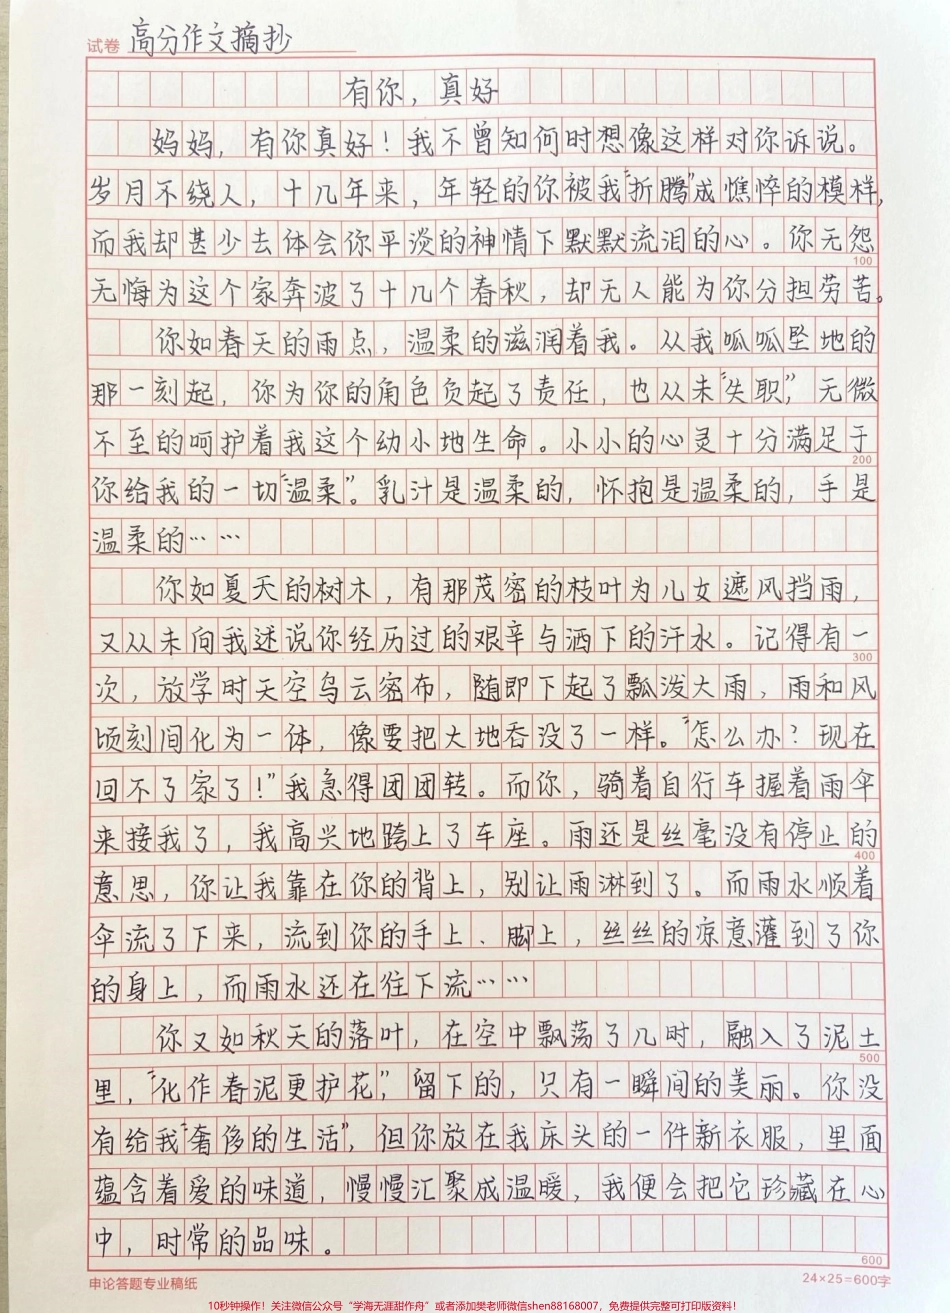 试卷 高分作文摘抄
有你，真好
妈妈，有你真好！我不曾知何时想像这样对你诉说。
岁月不绕人，十几年来，年轻的你被我“折腾”成憔悴的模样，
而我却甚少去体会你平淡的神情下默默流泪的心。你无怨
100
无悔为这个家奔波了十几个春秋，却无人能为你分担劳苦。
你如春天的雨点，温柔的滋润着我。从我呱呱坠地的
那一刻起，你为你的角色负起了责任，也从未“失职”，无微
不至的呵护着我这个幼小地生命。小小的心灵十分满足于
200
你给我的一切“温柔”。乳汁是温柔的，怀抱是温柔的，手是
温柔的……
你如夏天的树木，有那茂密的枝叶为儿女遮风挡雨，
又从未向我述说你经历过的艰辛与洒下的汗水。记得有一
300
次，放学时天空乌云密布，随即下起了瓢泼大雨，雨和风
顷刻间化为一体，像要把大地吞没了一样。“怎么办？现在
回不了家了！”我急得团团转。而你，骑着自行车握着雨伞
来接我了，我高兴地跨上了车座。雨还是丝毫没有停止的
400
意思，你让我靠在你的背上，别让雨淋到了。而雨水顺着
伞流了下来，流到你的手上、脚上，丝丝的凉意灌到了你
的身上，而雨水还在往下流……
你又如秋天的落叶，在空中飘荡了几时，融入了泥土
500
里，“化作春泥更护花”，留下的，只有一瞬间的美丽。你没
有给我“奢侈的生活”，但你放在我床头的一件新衣服，里面
蕴含着爱的味道，慢慢汇聚成温暖，我便会把它珍藏在心
中，时常的品味。
600
申论答题专业稿纸 24×25=600字
10秒钟操作！关注微信公众号“学海无涯甜作舟”或者添加樊老师微信shen88168007，免费提供完整可打印版资料！